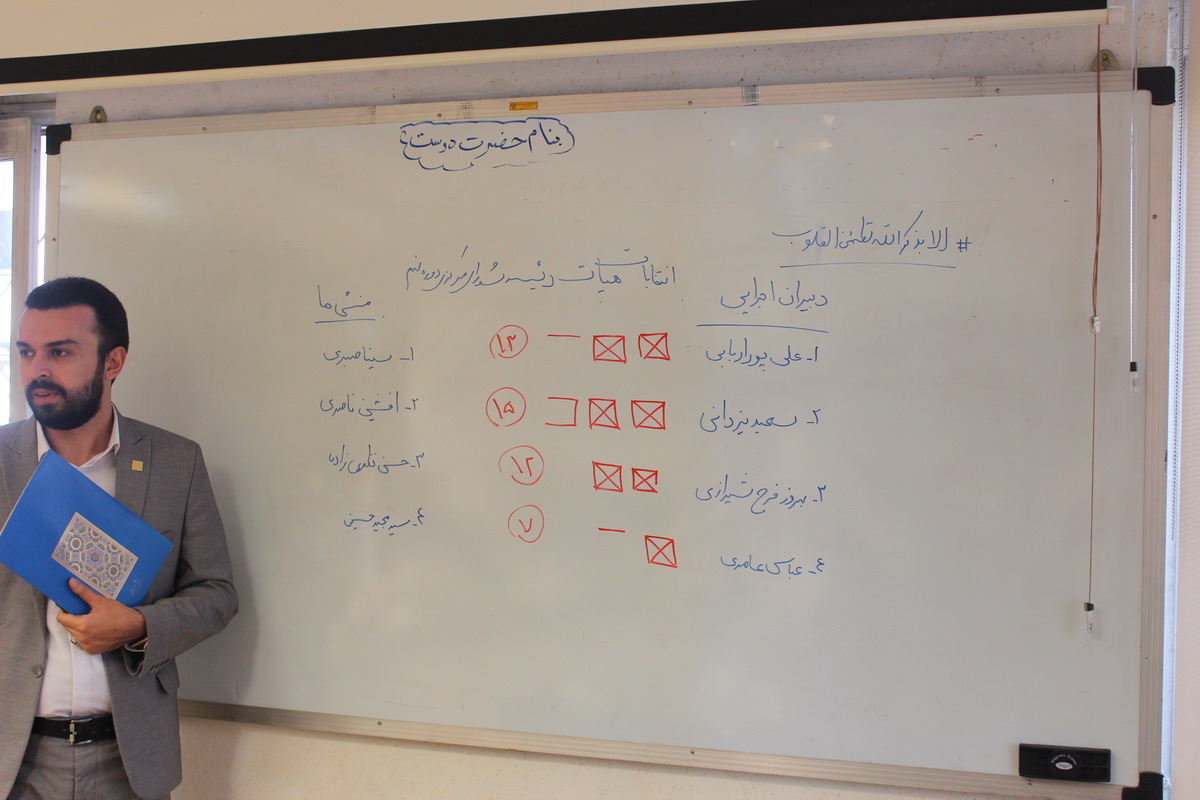 بنام حضرت دوست
# الا بذکر الله تطمئن القلوب
انتخابات هیأت رئیسه شورای مرکزی دوره نهم
دبیران اجرایی
۱- علی پوراربابی
۲- سعید یزدانی
۳- بهروز فرخ شیرازی
٤- عباس عامری
۱۳
۱۵
۱۲
۷
منشی ها
۱- سینا صبری
۲- افشین ناصری
۳- حسن
٤- سید مجید حسینی